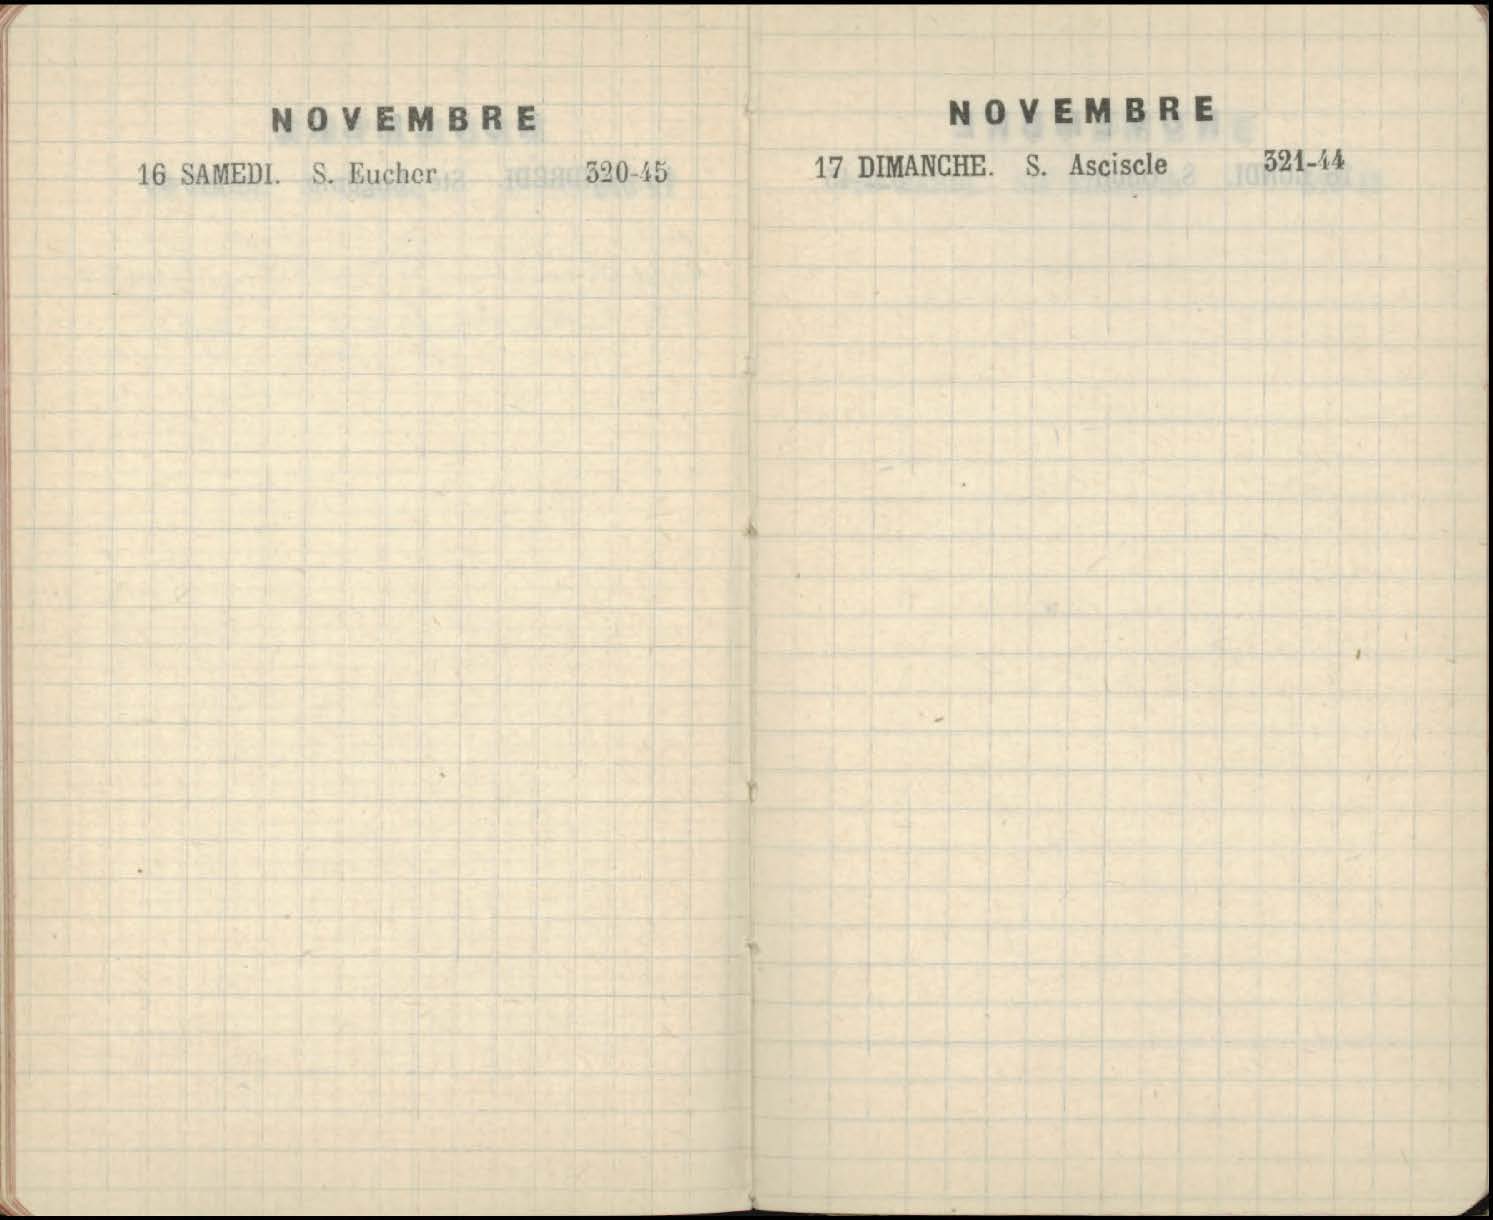 NOVEMBRE
16 SAMEDI. S. Eucher 320-45
NOVEMBRE
17 DIMANCHE. S. Asciscle 321-44